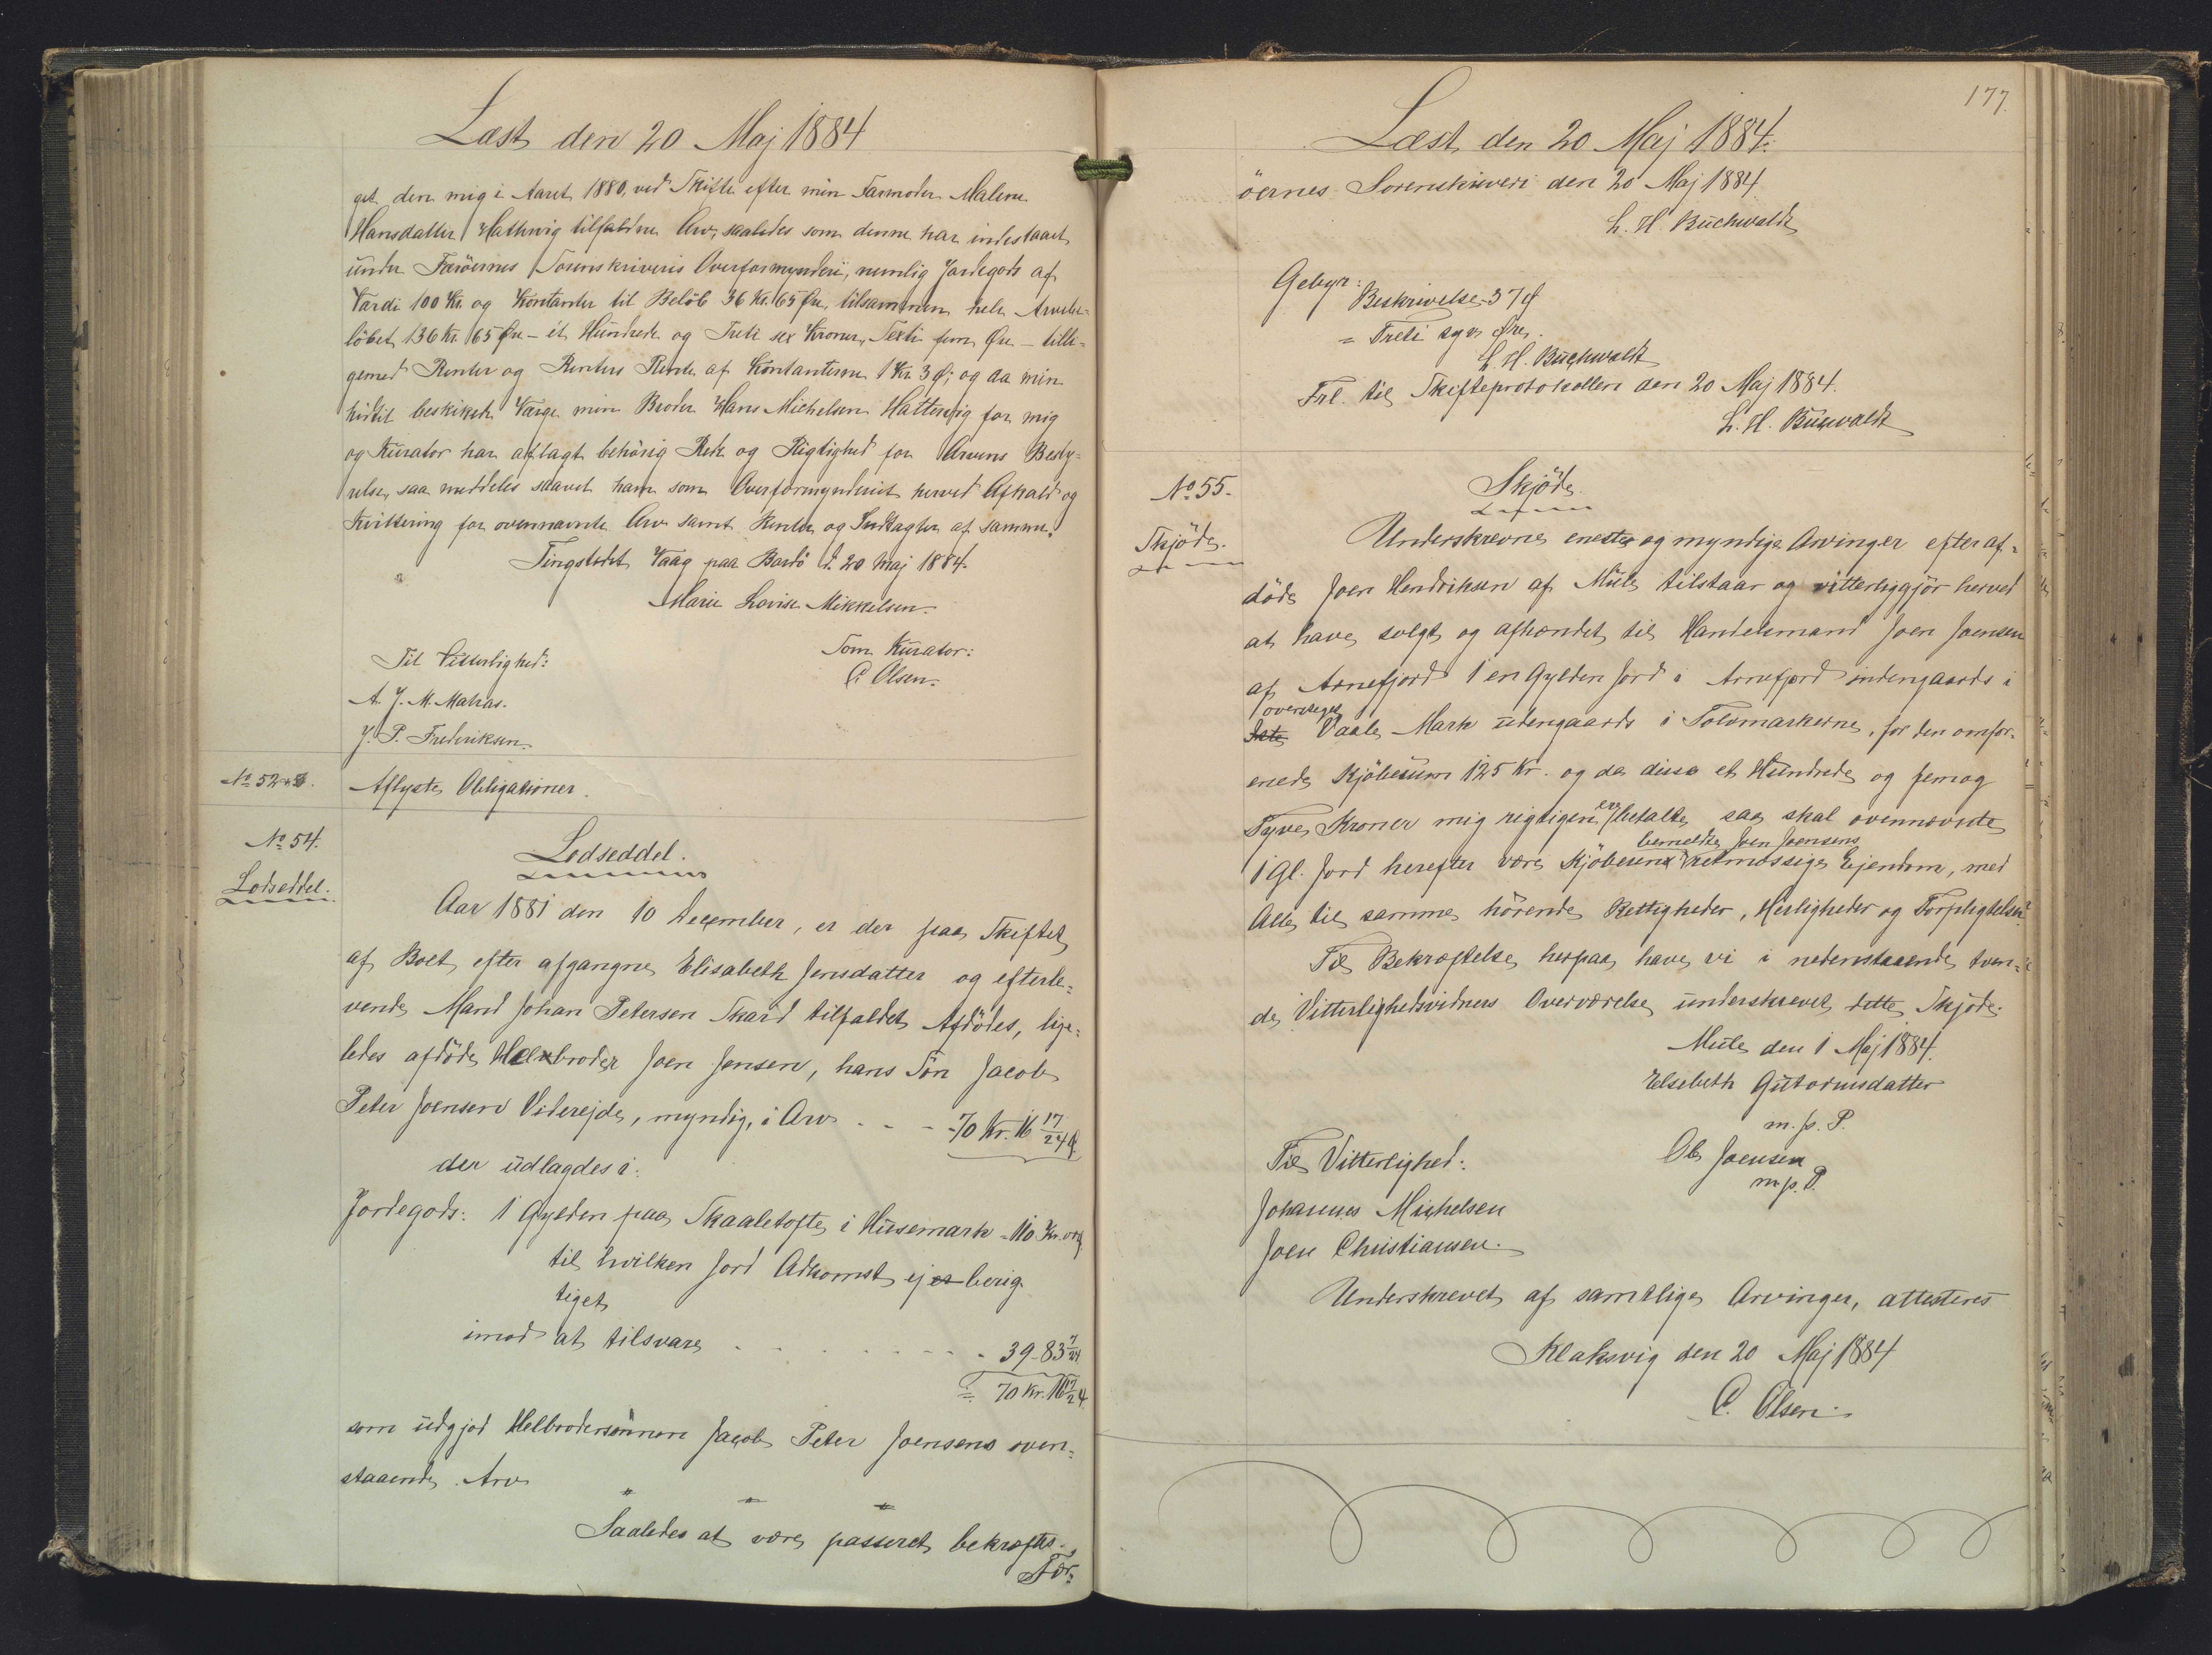 Læst den 20 Maj 1884
get den mig i Aaret 1880, ved Skifte efter min Farmoder Malene
Hansdatter Hattervig tilfaldne Arv, saaledes som denne har indestaaet
under Færöernes Sorenskriveris Overformynderi, nemlig Jordegods af
Værdi 100 Kr. og Kontanter til Belöb 36 Kr. 65 Öre, tilsammen hele Arvebe-
löbet 136 Kr. 65 Öre - et Hundrede og Treti sex Kroner, Sexti fem Öre - tilli-
gemed Renter og Renters Rente af Kontanterne 1 Kr. 3 Ø; og da min
hidtil beskikkede Værge min Broder Hans Michelsen Hattervig for mig
og Kurator har aflagt behörig Rede og Rigtighed for Arvens Besty-
relse, saa meddeles saavel ham som Overformynderiet herved Afkald og
Kvittering for ovennævnte Arv samt Renter og Indtægter af samme.
Tingstedet Vaag paa Bordö d. 20 Maj 1884.
Marie Lovise Mikkelsen.
Til Vitterlighed:
Som Kurator:
C. Olsen.
A. J. M. Matras.
J. P. Frederiksen.
No 52-3.
Aflyste Obligationer.
No 54.
Lodseddel.
Lodseddel.
Aar 1881 den 10 December, er der paa Skiftet
af Boet efter afgangne Elisabeth Jensdatter og efterle-
vende Mand Johan Petersen Skard tilfaldet Afdödes, lige-
ledes afdöde Helbroder Joen Jensen, hans Sön Jacob
Peter Joensen Viderejde, myndig, i Arv - - - 70 Kr. 16 17/24 Ø
der udlagdes i:
Jordegods: 1 Gylden paa Skaaletofte i Husemark - 110 Kr.
til hvilken Jord Adkomst ej er berig-
tiget
imod at tilsvare - - - - - 39-83 7/24
= 70 Kr. 16 17/24.
som udgjod Helbrodersönnen Jacob Peter Joensens oven-
staaende Arv
Saaledes at være passeret bekræftes.
Fær-
177.
Læst den 20 Maj 1884.
öernes Sorenskriveri den 20 Maj 1884
L. H. Buchwaldt
Gebyr:
Beskrivelse - 37 Ø
= Treti syv Øre.
L. H. Buchwaldt
Frl. til Skifteprotokollen den 20 Maj 1884.
L. H. Buchwaldt
No 55.
Skjöde.
Skjöde.
Underskrevne eneste og myndige Arvinger efter af-
döde Joen Hendriksen af Mule tilstaar og vitterliggjör herved
at have solgt og afhændet til Handelsmand Joen Joensen
af Arnefjord 1 en Gylden Jord i Arnefjord indengaards i
Vaale Mark udengaards i Tolvmarkerne, for den omfor-
enede Kjöbesum 125 Kr. og da disse et Hundrede og femog
Tyve Kroner mig rigtigen ere betalte, saa skal ovennævnte
bemeldte Joen Joensens
1 Gl. Jord herefter være Kjöberens retmæssige Ejendom, med
Alle til samme hörende Rettigheder, Herligheder og Forpligtelser.
Til Bekræftelse herpaa have vi i nedenstaaende tven-
de Vitterlighedsvidners Overværelse underskrevet dette Skjöde.
Mule den 1 Maj 1884.
Elsebeth Guttormsdatter
m. p. P.
Til Vitterlighed:
Ole Joensen
m. p. P.
Johannes Michelsen
Joen Christiansen.
Underskrevet af samtlige Arvinger, attesteres
Klaksvig den 20 Maj 1884
C. Olsen.